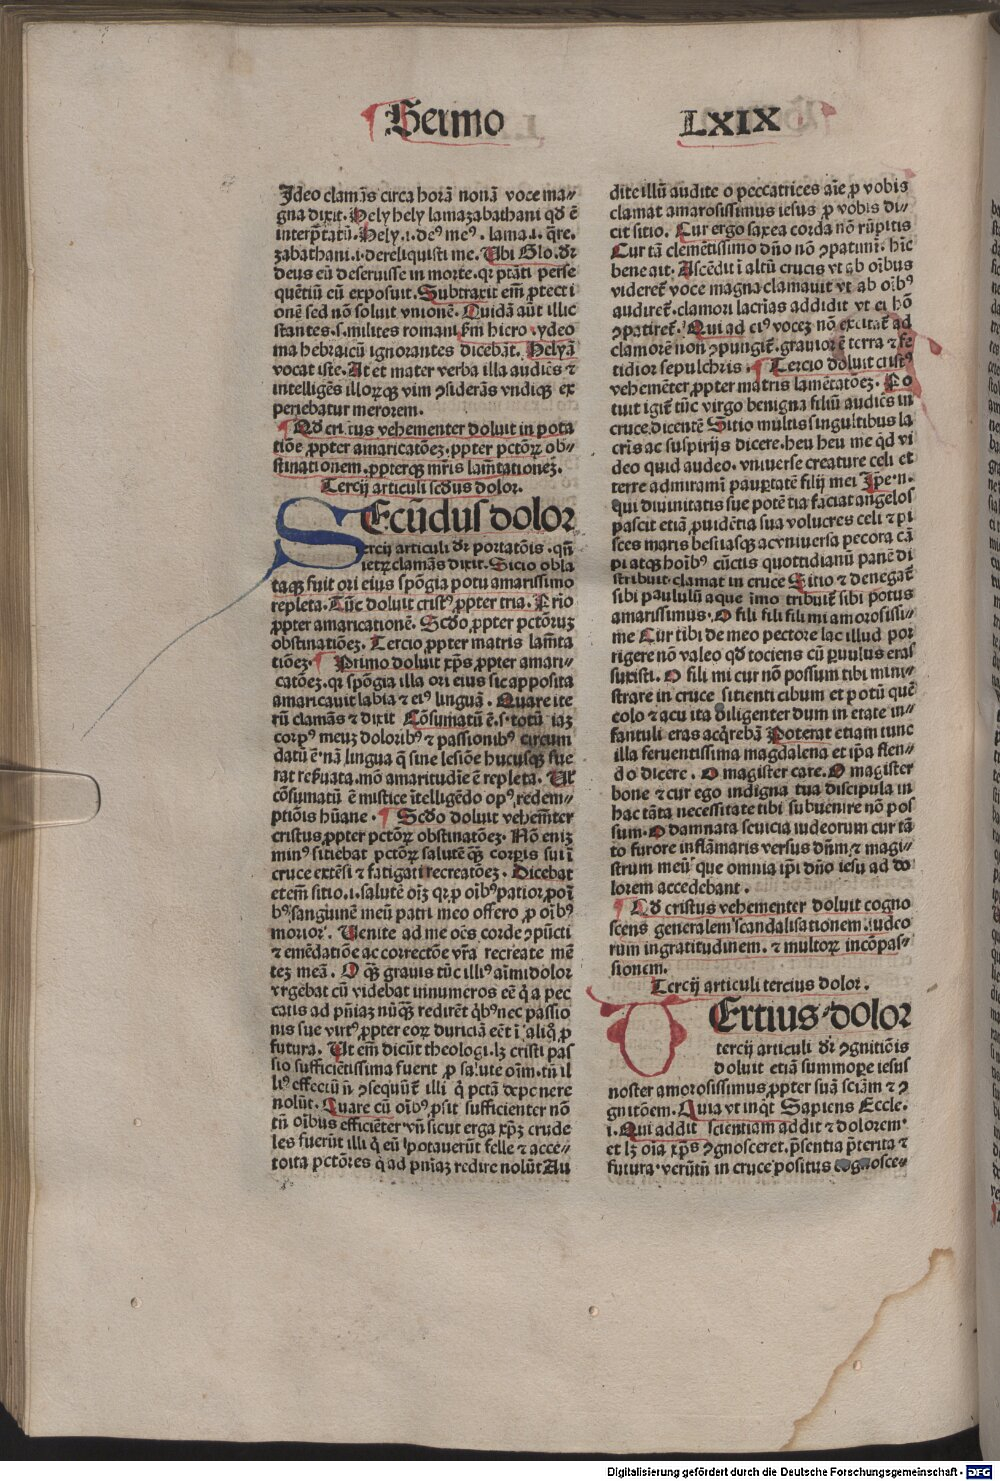 Sermo
LXIX
Ideo clamãs circa horã nonã voce ma⸗
gna dixit. Hely hely lamazabathani qđ ē
interp̃tatũ. Hely .i. de⁹ me⁹ . lama .i. q̃re.
zabathani .i. dereliquisti me. Ubi Glo. dr̃
deus eũ deseruisse in morte. qr ptãti perse
quẽtiũ eũ exposuit. Subtraxit em̃ ptecti
onẽ sed nõ soluit vnionẽ. Quidã aũt illic
stantes .s. milites romani s̃m hiero. ydeo
ma hebraicũ ignorantes dicebãt. Helyã
vocat iste. At et mater verba illa audiẽs ⁊
intelligẽs illorꝝqꝫ vim ꝯsiderãs vndiqꝫ ex
periebatur merorem.
Qđ cristus vehementer doluit in pota
tiõe ꝓpter amaricatõeꝫ. ꝓpter pctõꝝ ob⸗
stinationem. ꝓpterqꝫ mr̃is lam̃tationeꝫ.
Tercij articuli scđus dolor.
SEcũdus dolor
tercij articuli dr̃ potatõis. qñ
ietꝝ clamãs dixit. Sicio obla
taqꝫ fuit ori eius spõgia potu amarissimo
repleta. Tũc doluit crist⁹ ꝓpter tria. Prĩo
ꝓpter amaricationẽ. Scđo ꝓpter pctõruꝫ
obstinatiõeꝫ. Tercio ꝓpter matris lam̃ta
tiõeꝫ. Primo doluit xp̃s ꝓpter amari⸗
catõeꝫ. qr spõgia illa ori eius sic apposita
amaricauit labia ⁊ ei⁹ linguã. Quare ite
rũ clamãs ⁊ dixit Cõsumatũ ẽ .s. totũ iaꝫ
corp⁹ meuꝫ dolorib⁹ ⁊ passionib⁹ circum
datũ ẽ. nã lingua q̃ sine lesiõe hucusqꝫ fue
rat reẛuata. mõ amaritudĩe ẽ repleta. Uł
cõsumatũ ẽ mistice ĩtelligẽdo op⁹ redem⸗
ptiõis hũane. Scđo doluit vehem̃ter
cristus ꝓpter pctõꝝ obstinatõeꝫ. Nõ eniꝫ
min⁹ sitiebat pctõꝝ salutẽ qꝫ̃ corpꝭis sui ĩ
cruce extẽsi ⁊ fatigati recreatõeꝫ. Dicebat
etem̃ sitio .i. salutẽ oĩꝫ qr ꝓ oĩb⁹ patior. ꝓ oĩ
b⁹ sanguinẽ meũ patri meo offero ꝓ oĩb⁹
morior. Uenite ad me oẽs corde ꝯpũcti
⁊ emẽdatiõe ac correctõe vr̃a recreate mẽ
teꝫ meã. O qꝫ̃ grauis tũc illi⁹ aĩmi dolor
vrgebat cũ videbat innumeros eẽ q̃ a pec
catis ad pñiaꝫ nũqꝫ̃ redirẽt q̃b⁹ nec passio
nis sue virt⁹ ꝓpter eoꝝ duriciã eẽt ĩ aliq̃ ꝓ
futura. Ut em̃ dicũt theologi. lꝫ cristi pas
sio sufficiẽtissima fuerit ꝓ salute oĩm. tñ il
li⁹ effectũ ñ ꝯsequũt̃ illi q̃ pctã depe nere
nolũt. Quare cũ oĩb⁹ ꝓsit sufficienter nõ
tñ oĩbus efficiẽter. vñ sicut erga xp̃ꝫ crude
les fuerũt illi q̃ eũ potauerũt felle ⁊ acce⸗
toita pctõres q̃ ad pñiaꝫ redire nolũt Au
dite illũ audite o peccatrices aĩe ꝓ vobis
clamat amarosissimus iesus ꝓ vobis di⸗
cit sitio. Cur ergo saxea corda nõ rũpitis
Cur tã clemẽtissimo dño nõ ꝯpatimĩ. hĩc
bene ait. Ascẽdit ĩ altũ crucis vt ab oĩbus
videret̃ voce magna clamauit vt ab oĩb⁹
audiret̃. clamori lacrĩas addidit vt ei hõ
ꝯpatiret̃. Qui ad ei⁹ voceꝫ nõ excitat̃ ad
clamorẽ non ꝯpungit̃. grauior ẽ terra ⁊ fe
tidior sepulchris. Tercio doluit crist⁹
vehemẽter ꝓpter matris lamẽtatõeꝫ. Po
tuit igit̃ tũc virgo benigna filiũ audiẽs in
cruce dicentẽ Sitio multis singultibus la
cr̃is ac suspirijs dicere. heu heu me q̃d vi
deo quid audeo. vniuerse creature celi et
terre admiramĩ paupertatẽ filij mei Ip̃e .n.
qui diuinitatis sue potẽtia faciat angelos
pascit etiã ꝓuidẽtia sua volucres celi ⁊ pi
sces maris bestiasqꝫ ac vniuersa pecora cã
pi atqꝫ hoĩb⁹ cũctis quottidianũ panẽ di
stribuit. clamat in cruce Sitio ⁊ denegat̃
sibi paululũ aque ĩmo tribuit̃ sibi potus
amarissimus. O fili fili fili mi amorosissi⸗
me Cur tibi de meo pectore lac illud por
rigere nõ valeo qđ tociens cũ paruulus eras
suxisti. O fili mi cur nõ possum tibi mini⸗
strare in cruce sitienti cibum et potũ quẽ
colo ⁊ acu ita diligenter dum in etate in⸗
fantuli eras acq̃rebã Poterat etiam tunc
illa feruentissima magdalena et ip̃a flen⸗
do dicere. O magister care. O magister
bone ⁊ cur ego indigna tua discipula in
hac tãta necessitate tibi subuenire nõ pos
sum. O damnata seuicia iudeorum cur tã
to furore inflãmaris versus dñm ⁊ magi⸗
strum meũ que omnia ip̃i dño iesu ad do
lorem accedebant.
Qđ cristus vehementer doluit cogno
scens generalem scandalisationem. iudeo
rum ingratitudinem. ⁊ multorꝝ incõpas⸗
sionem.
Tercij articuli tercius dolor.
TErtius dolor
tercij articuli dr̃ ꝯgnitiõis
doluit etiã summope iesus
noster amorosissimus ꝓpter suã sciãm ⁊ ꝯ
gnitõem. Quia vt inq̃t Sapiens Eccle.
i. Qui addit scientiam addit ⁊ dolorem.
et lꝫ oĩa xp̃s ꝯgnosceret. p̃sentia p̃terita ⁊
futura. verũtñ in cruce positus cognosce⸗
Digitalisierung gefördert durch die Deutsche Forschungsgemeinschaft - DFG